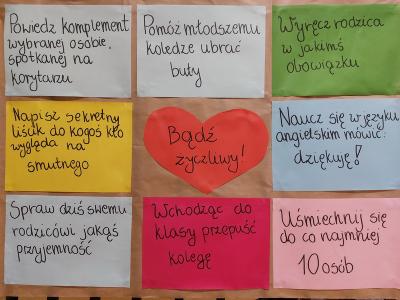 Powiedz komplement
wybranej osobie,
spotkanej na
korytarzu
Pomóż młodszemu
koledze ubrać
buty
Wyręcz rodzica
w jakimś
obowiązku
Napisz sekretny
liścik do kogoś kto
wygląda na
smutnego
Bądź
życzliwy!
Naucz się w języku
angielskim mówić:
dziękuję!
Spraw dziś swemu
rodzicówi jakąś
przyjemność
Wchodząc do
klasy przepuść
kolegę
Uśmiechnij się
do co najmniej
10 osób